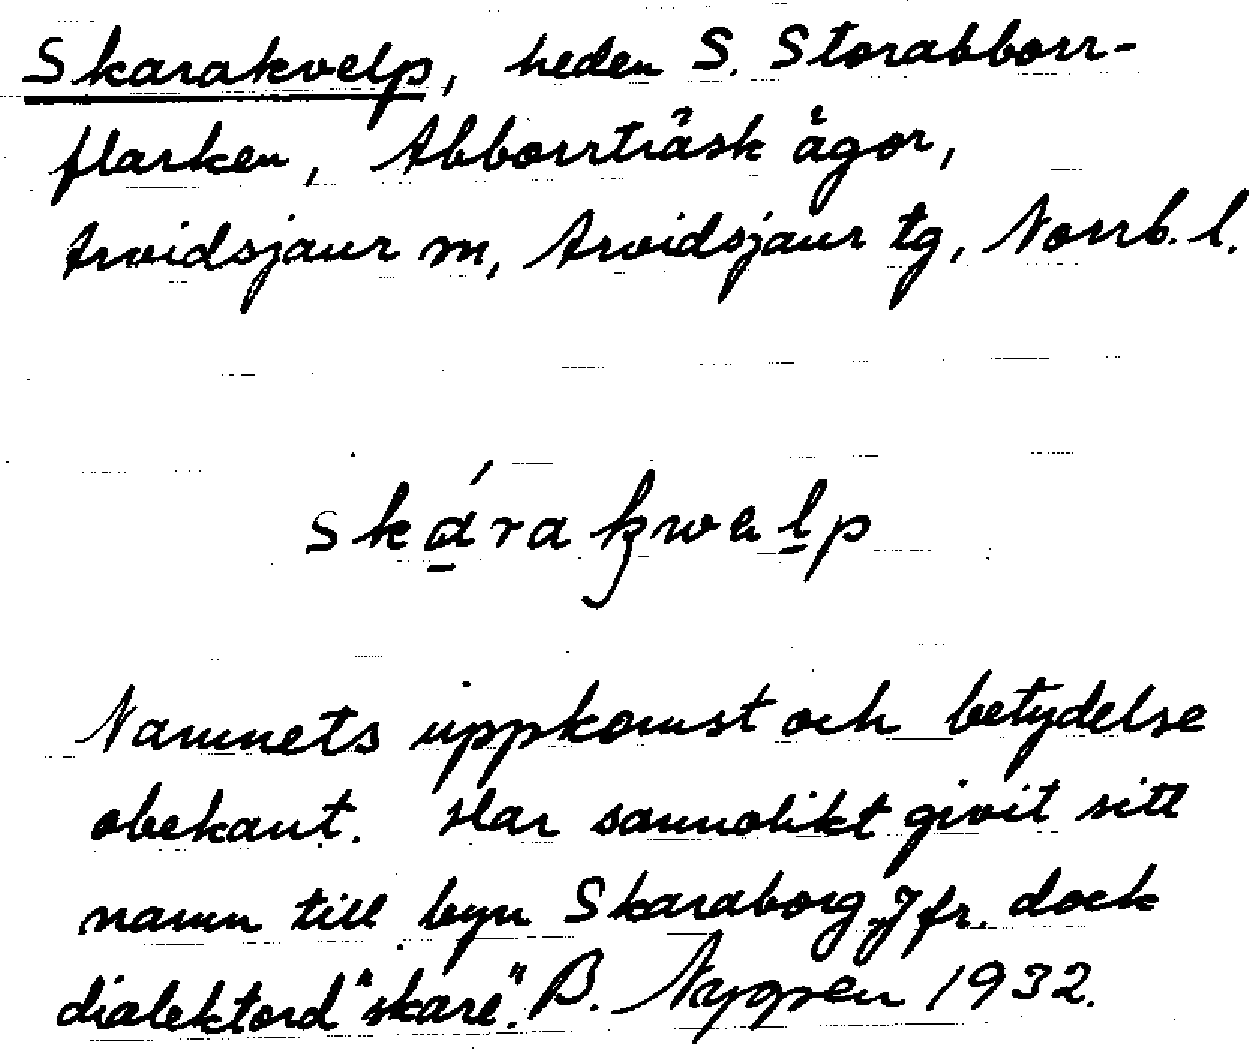 Skarakvelp, heden S. Storabborr-
flarken, Abborrträsk ägor,
Arvidsjaur sn, Arvidsjaur tg, Norrb. l.
skára kwelp
Namnets uppkomst och betydelse
obekant. Har sannolikt givit sitt
namn till byn Skaraborg. Jfr. dock
dialektord "skare". B. Nygren 1932.